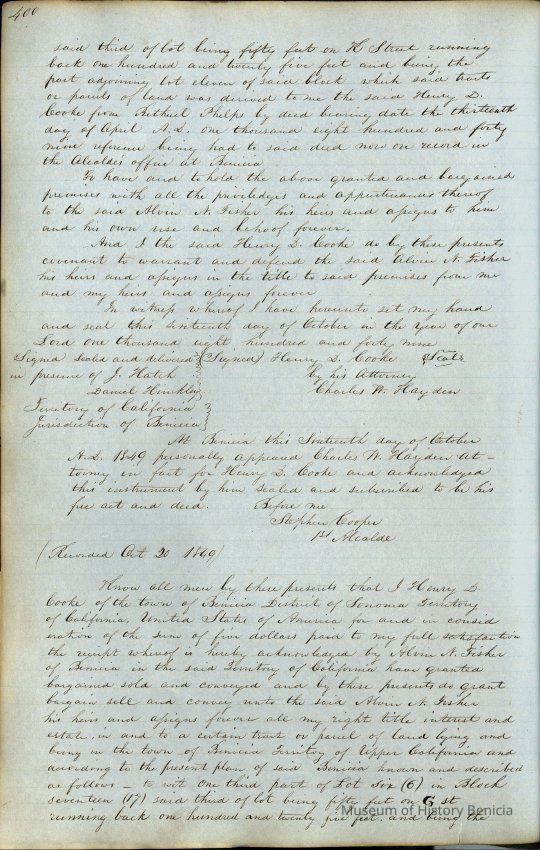 400
said third of lot being fifty feet on K Street running
back one hundred and twenty five feet and being the
part adjoining lot eleven of said block which said tracts
or parcels of land was derived to me the said Henry D.
Cooke from Bethuel Phelps by deed bearing date the thirteenth
day of April A.D. one thousand eight hundred and forty
nine reference being had to said deed now on record in
the Alcaldes office at Benicia
To have and to hold the above granted and bargained
premises with all the priviledges and appurtenances thereof
to the said Alvin N. Fisher his heirs and assigns to him
and his own use and behoof forever.
And I the said Henry D. Cooke do by these presents
covenant to warrant and defend the said Alvin N. Fisher
his heirs and assigns in the title to said premises from me
and my heirs and assigns forever
In witness whereof I have hereunto set my hand
and seal this sixteenth day of October in the year of our
Lord one thousand eight hundred and forty nine
Signed sealed and delivered (Signed) Henry D. Cooke Seal
in presence of J. Hatch by his Attorney
Daniel Hinkley Charles W. Hayden
Territory of California
Jurisdiction of Benicia
At Benicia this Sixteenth day of October
A.D. 1849 personally appeared Charles W. Hayden At-
torney in fact for Henry D. Cooke and acknowledged
this instrument by him sealed and subscribed to be his
free act and deed. Before me
Stephen Cooper
1st Alcalde
(Recorded Oct 20 1849)
Know all men by these presents that I Henry D.
Cooke of the town of Benicia District of Sonoma Territory
of California, United States of America for and in consid
eration of the sum of five dollars paid to my full satisfaction
the receipt whereof is hereby acknowledged by Alvin N. Fisher
of Benicia in the said Territory of California have granted
bargained sold and conveyed and by these presents do grant
bargain sell and convey unto the said Alvin N. Fisher
his heirs and assigns forever all my right title interest and
estate in and to a certain tract or parcel of land lying and
being in the town of Benicia Territory of Upper California and
according to the present plan of said Benicia known and described
as follows - to wit One third part of Lot Six (6) in Block
seventeen (17) said third of lot being fifty feet on G st
running back one hundred and twenty five feet. and being the
Museum of History Benicia